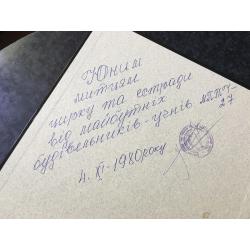 Юним
митцям
цирку та естради
від майбутніх
будівельників-учнів МПТУ-
27
4. XI-1980 року